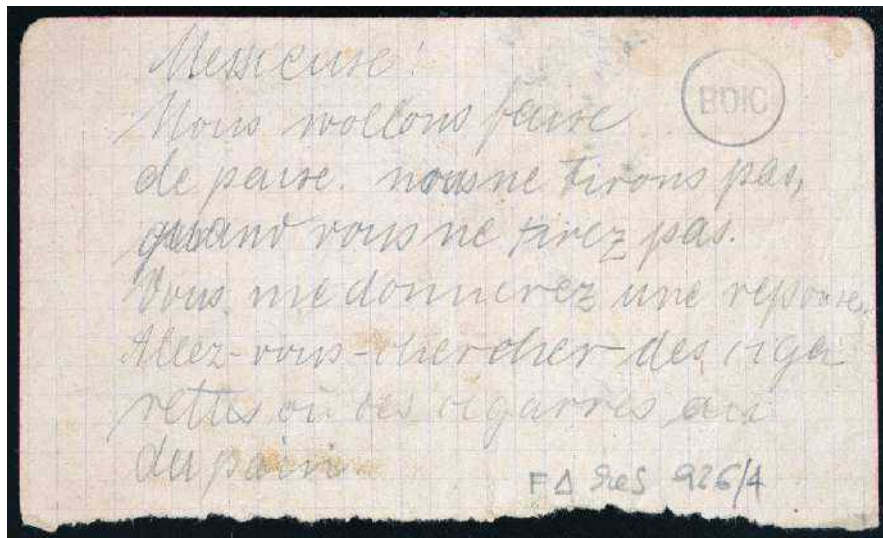 Messieurs!
BDIC
Nous wollons faire
de pause. nous ne tirons pas,
quand vous ne tirez pas.
Vous me donnerez une reponse.
Allez-vous-chercher des ciga
rettes ou des cigarres
du pain
F∆ Res 926/4